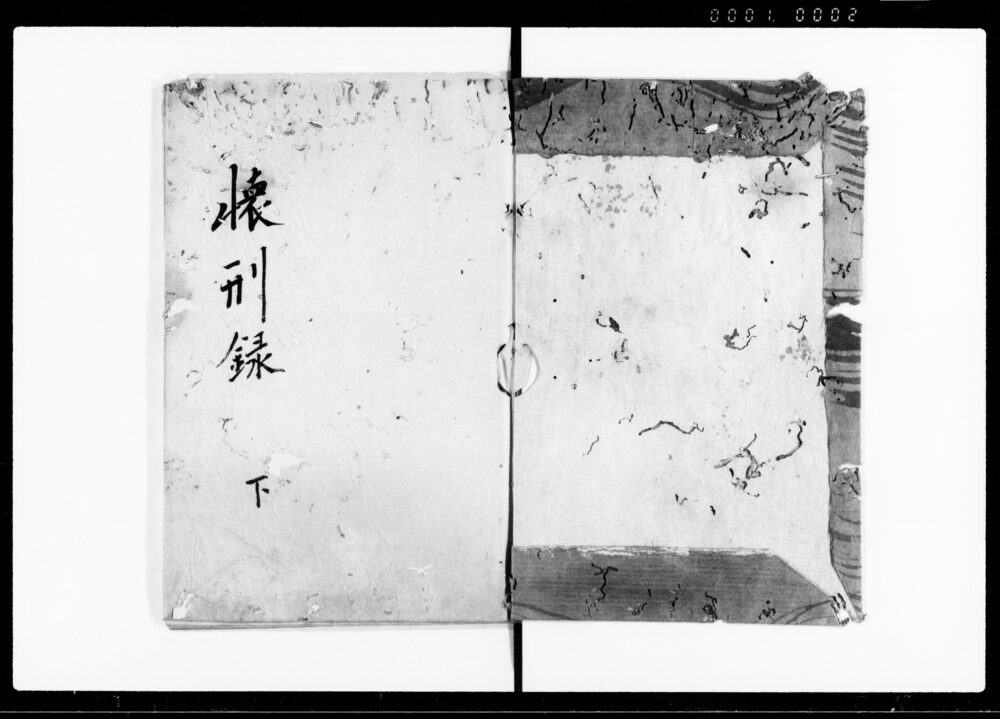 0001. 0002
懐刑録
下